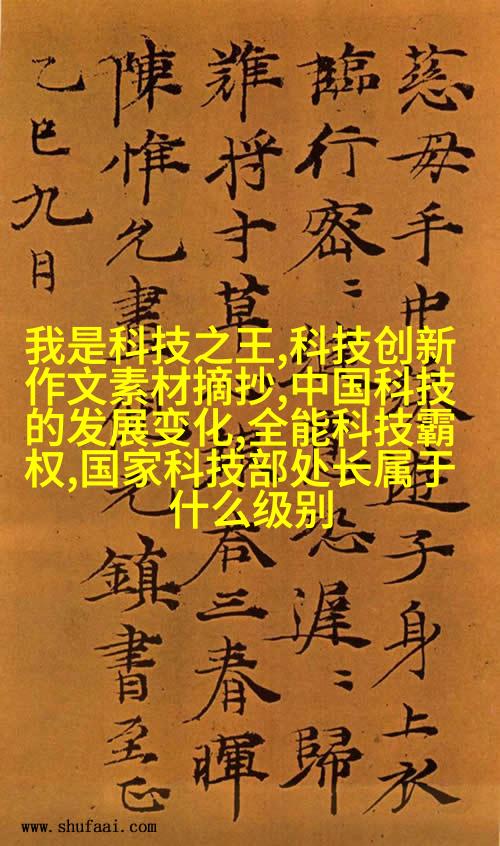 慈母手中遊子身上衣
臨行密〻恐遲〻歸
難將寸草荅三春暉
陳惟允書允鎮書至正
乙巳九月
我是科技之王,科技创新
作文素材摘抄,中国科技
的发展变化,全能科技霸
权,国家科技部处长属于
什么级别
www.shufaai.com